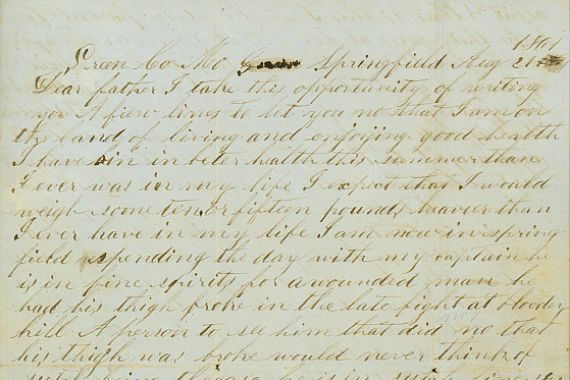 1861
Green Co Mo Springfield Aug 21
Dear father I take this opportunity of writing
you A fiew lines to let you no that I am on
the land of living and enjoying good health
I have bin in beter health this summer than
I ever was in my life I expect that I would
weigh some ten or fifteen pounds heavier than
I ever have in my life I am now in spring
field spending the day with my captain he
is in fine spirits for a wounded man he
had his thigh broke in the late fight at bloody
hill A person to see him that did no that
his thigh was broke would never think of
being he is in such